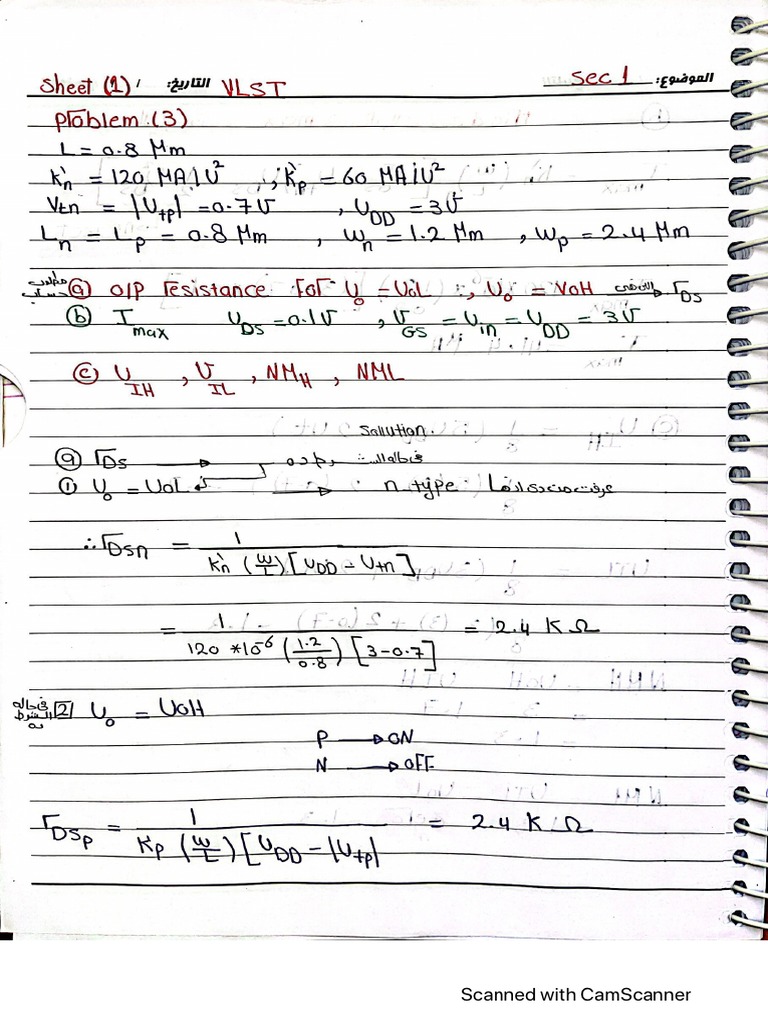 Sheet (1) التاريخ: VLST الموضوع: Sec 1
Problem (3)
L = 0.8 Mm
K'n = 120 MA/V² , K'p = 60 MA/V²
Vtn = |Vtp| = 0.7 V , VDD = 3V
Ln = Lp = 0.8 Mm , Wn = 1.2 Mm , Wp = 2.4 Mm
ⓐ O/P resistance For Vo = VoL , Vo = VOH → rDS
ⓑ Imax VDS = 0.1V , VGS = Vin = VDD = 3V
ⓒ VIH , VIL , NMH , NML
Sollution
ⓐ rDS →
① Vo = VoL → n-type
∴ rDSn = 1 / K'n (W/L) [VDD - Vtn]
= 1 / 120 *10⁻⁶ (1.2/0.8) [3-0.7] = 2.4 KΩ
2 Vo = VOH
P → ON
N → OFF
rDSp = 1 / Kp (W/L) [VDD - |Vtp| = 2.4 K Ω
Scanned with CamScanner